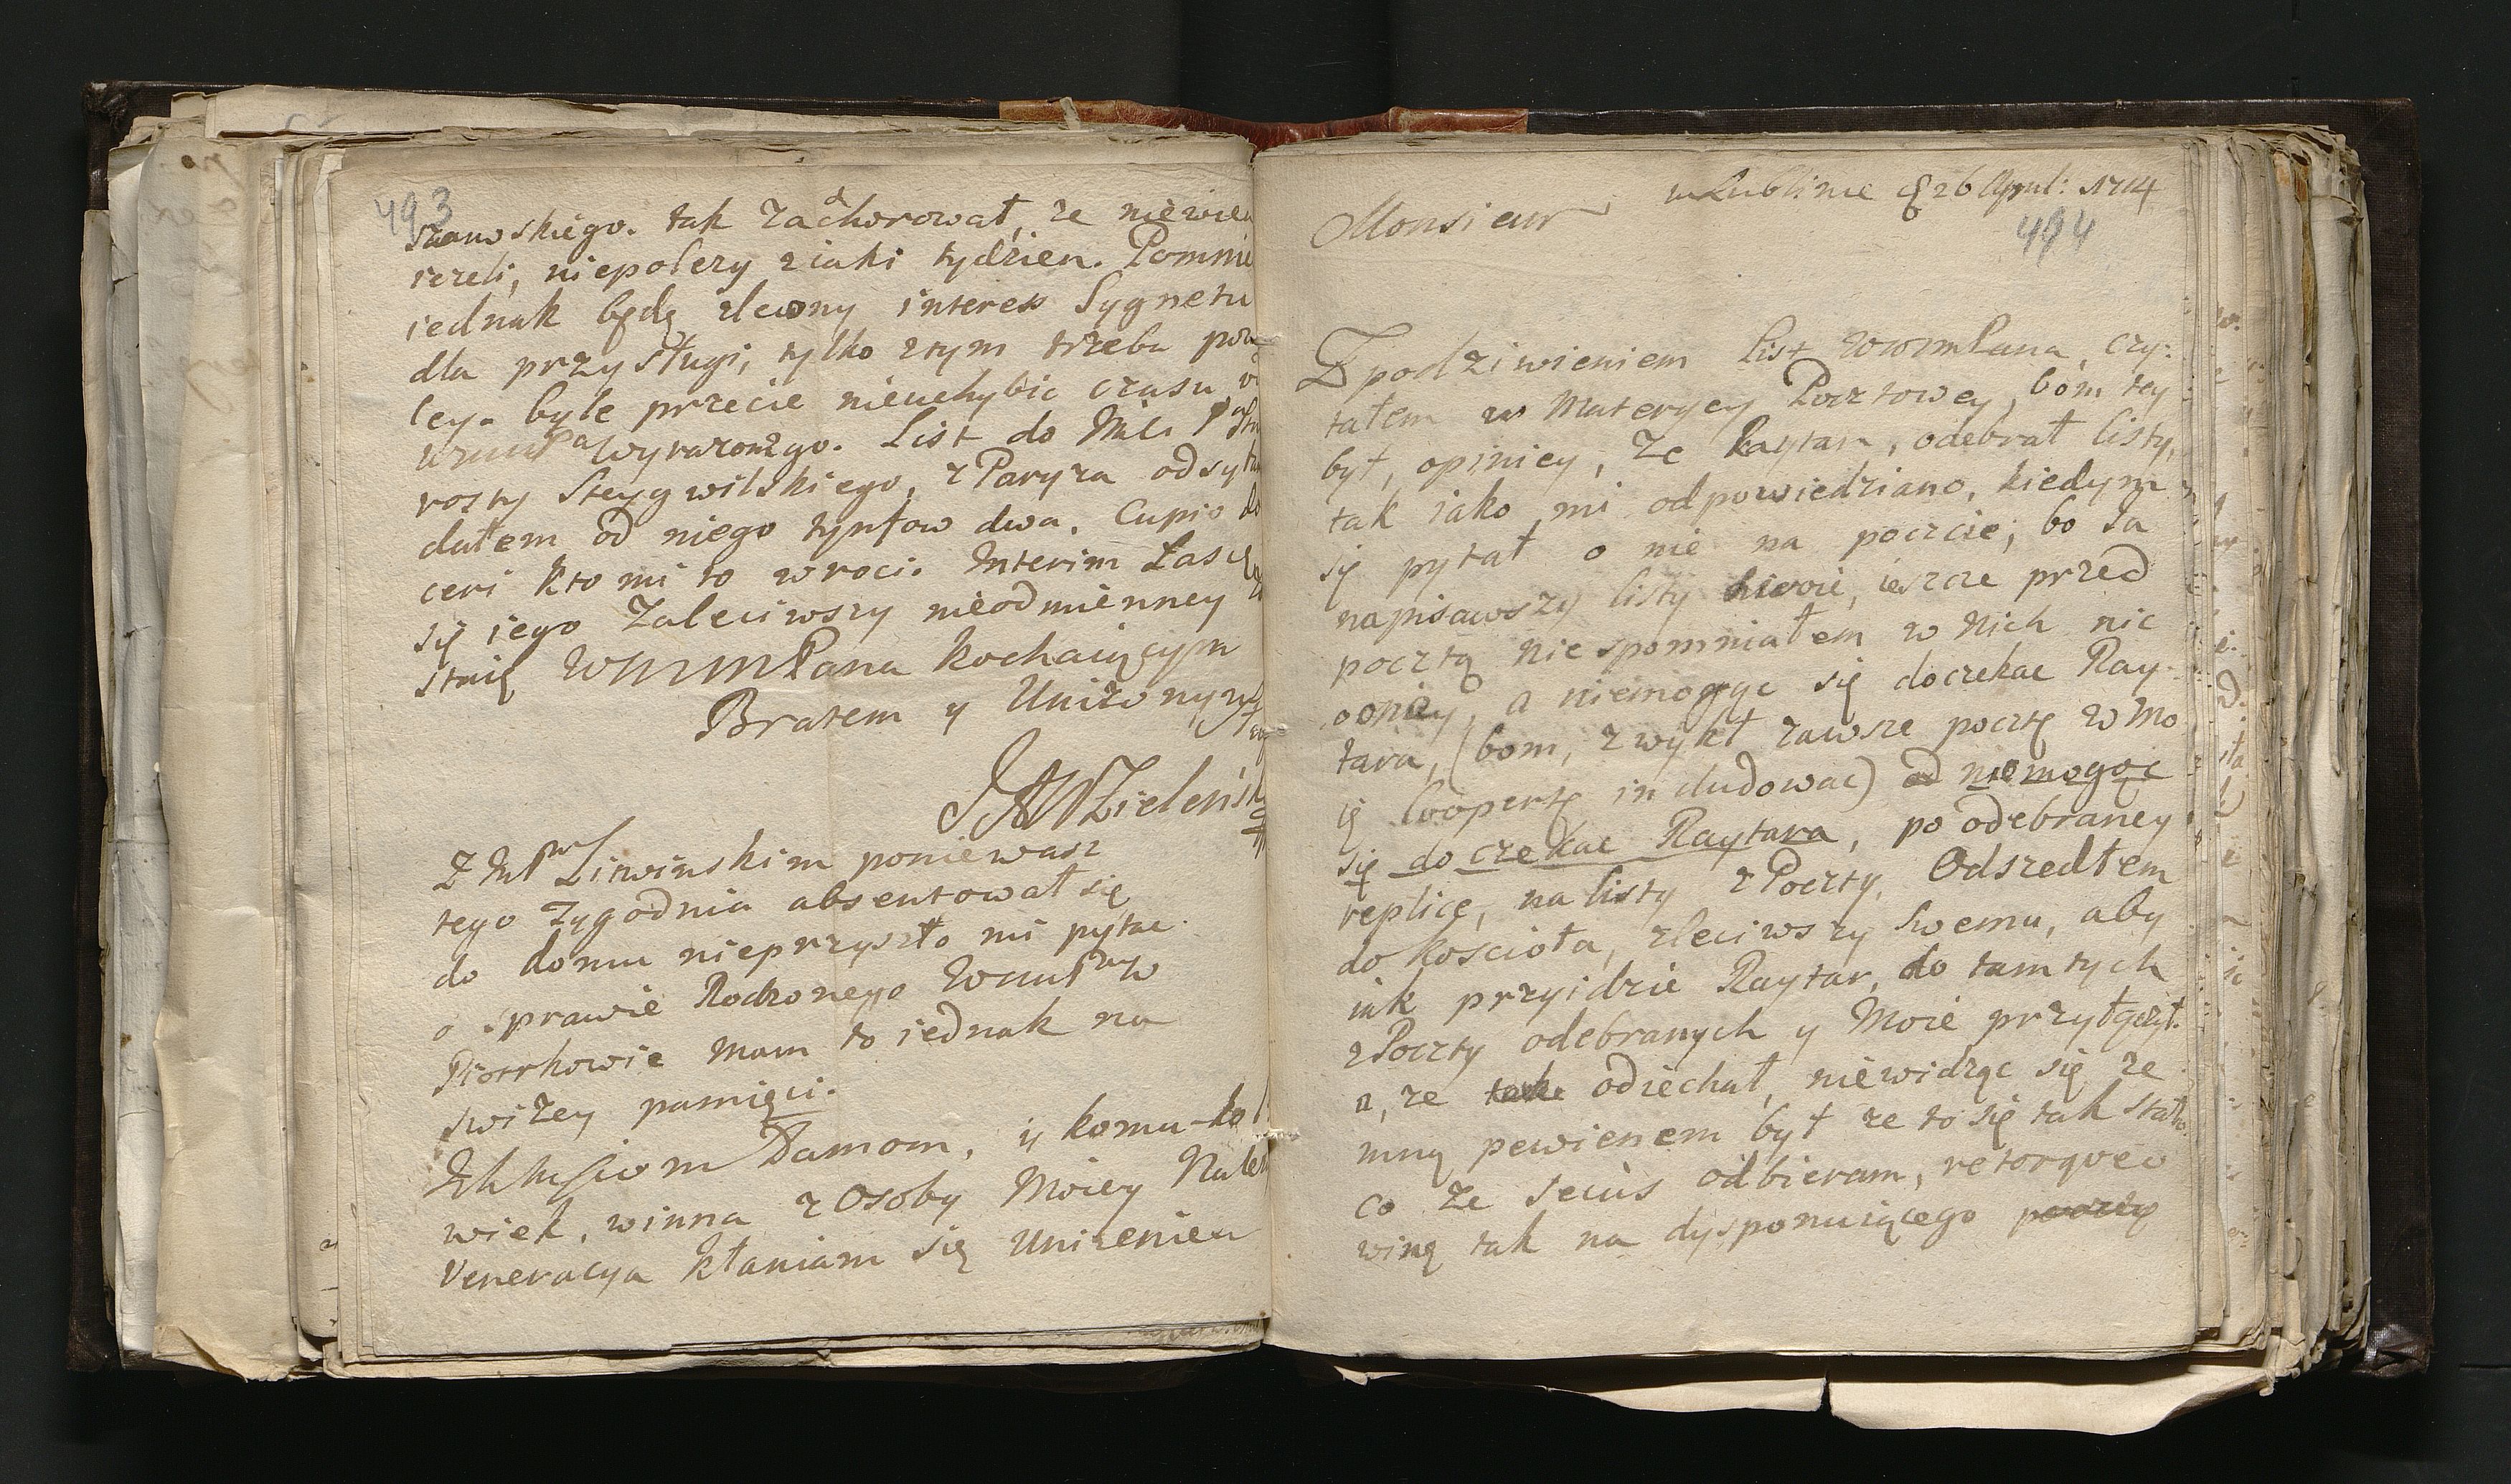 493
szawskiego. tak zachorował, ze niewie
iezeli, niepolezy z iaki tydzien. Pomnie
iednak będę zlecony interess Sygnetu
dla przysługi, tylko z tym trzeba
ley. byle przecie nieuchybic czasu
wyrazonego. List do
rosty Steygwilskiego, z Paryza odsy
dałem od niego tynfow dwa. Cupio
ceri kto mi to wroci. Interim Łasce
się iego Zaleciwszy nieodmienney
staię WMMPana kochaiącym
Bratem y Uniżonym
Zieleński
Z Litwinskim poniewasz
tego Tygodnia absentował się
do domu nieprzyszło mi pytac
o sprawie Rodzonego w
Piotrkowie mam to iednak na
swiżey pamięci.
Damom, y komu-kol
wiek, winna z Osoby Moiey
Veneracya kłaniam się Unizenie
Monsieur
w Lublinie d 26 April: 1714
494
Z podziwieniem List WMMPana, czy:
tałem w Materyey Pocztowey, bóm tey
był, opiniey, Ze Raytar, odebrał listy,
tak iako mi odpowiedziano, kiedym
się pytał o nie na poczcie; bo Ja
napisawszy listy swoie, ieszcze przed
pocztą nie spomniałem w nich nic
o oniey, a niemogąc się doczekac Ray-
tara, (bom, zwykł zawsze pocztę w Mo
ię Coopertę includowac) ad niemogąc
się doczekac Raytara, po odebraney
replice, na listy z Poczty, Odszedłem
do koscioła, zleciwszy swemu, aby
iak przyidzie Raytar, do tamtych
z Poczty odebranych y Moie przyłączył.
a, ze tak odiechał, niewidząc się ze
mną pewienem był ze to się tak stało.
co Ze secus odbieram, retorqveo
winę tak na dysponuiącego pocztę